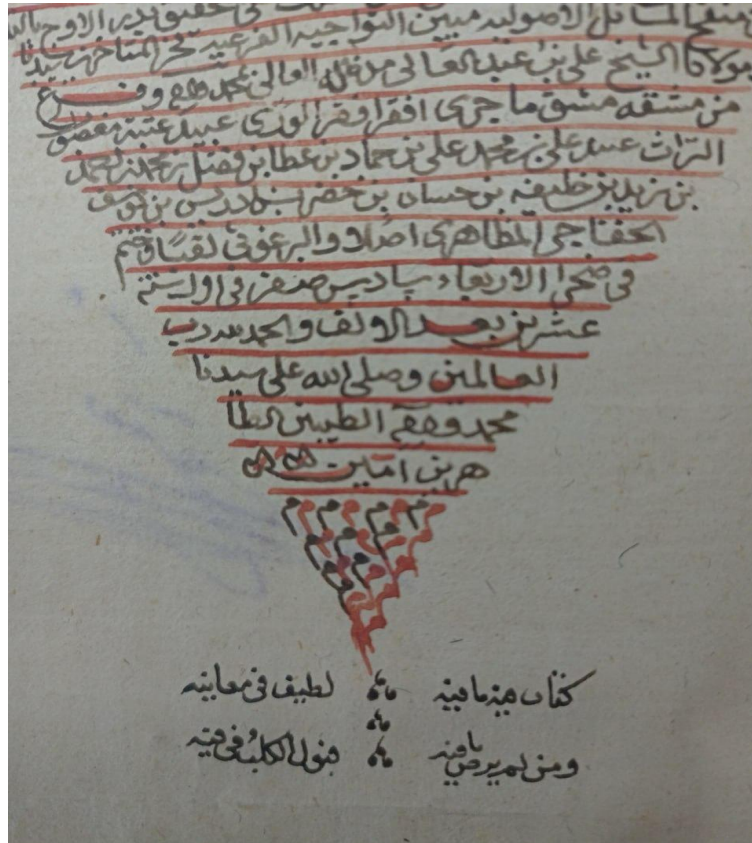 منقح المسائل الاصوليه مبين التواجيه الفرعيه فخر المتاخرين سيدنا
مولانا الشيخ علي بن عبد العالي مد ظله العالي بمحمد وفرغ
من مشقه مشق ما جرى افقر افقر الورى عبيد عتبة
التراث عبد علي بن محمد علي بن حماد بن عطا بن فضل
بن زيد بن خليفه بن حسان بن خضر بن ادريس بن يوسف
الخفاجي المظاهري اصلا و لقبا وقد تم
في ضحى الاربعاء سادس صفر في اول سنة
عشرين بعد الالف والحمد لله رب
العالمين وصلى الله على سيدنا
محمد وآله الطيبين الطا
هرين آمين
كتاب فيه ما فيه لطيف في معانيه
ومن لم يرض ما فيه فبول الكلب في فيه